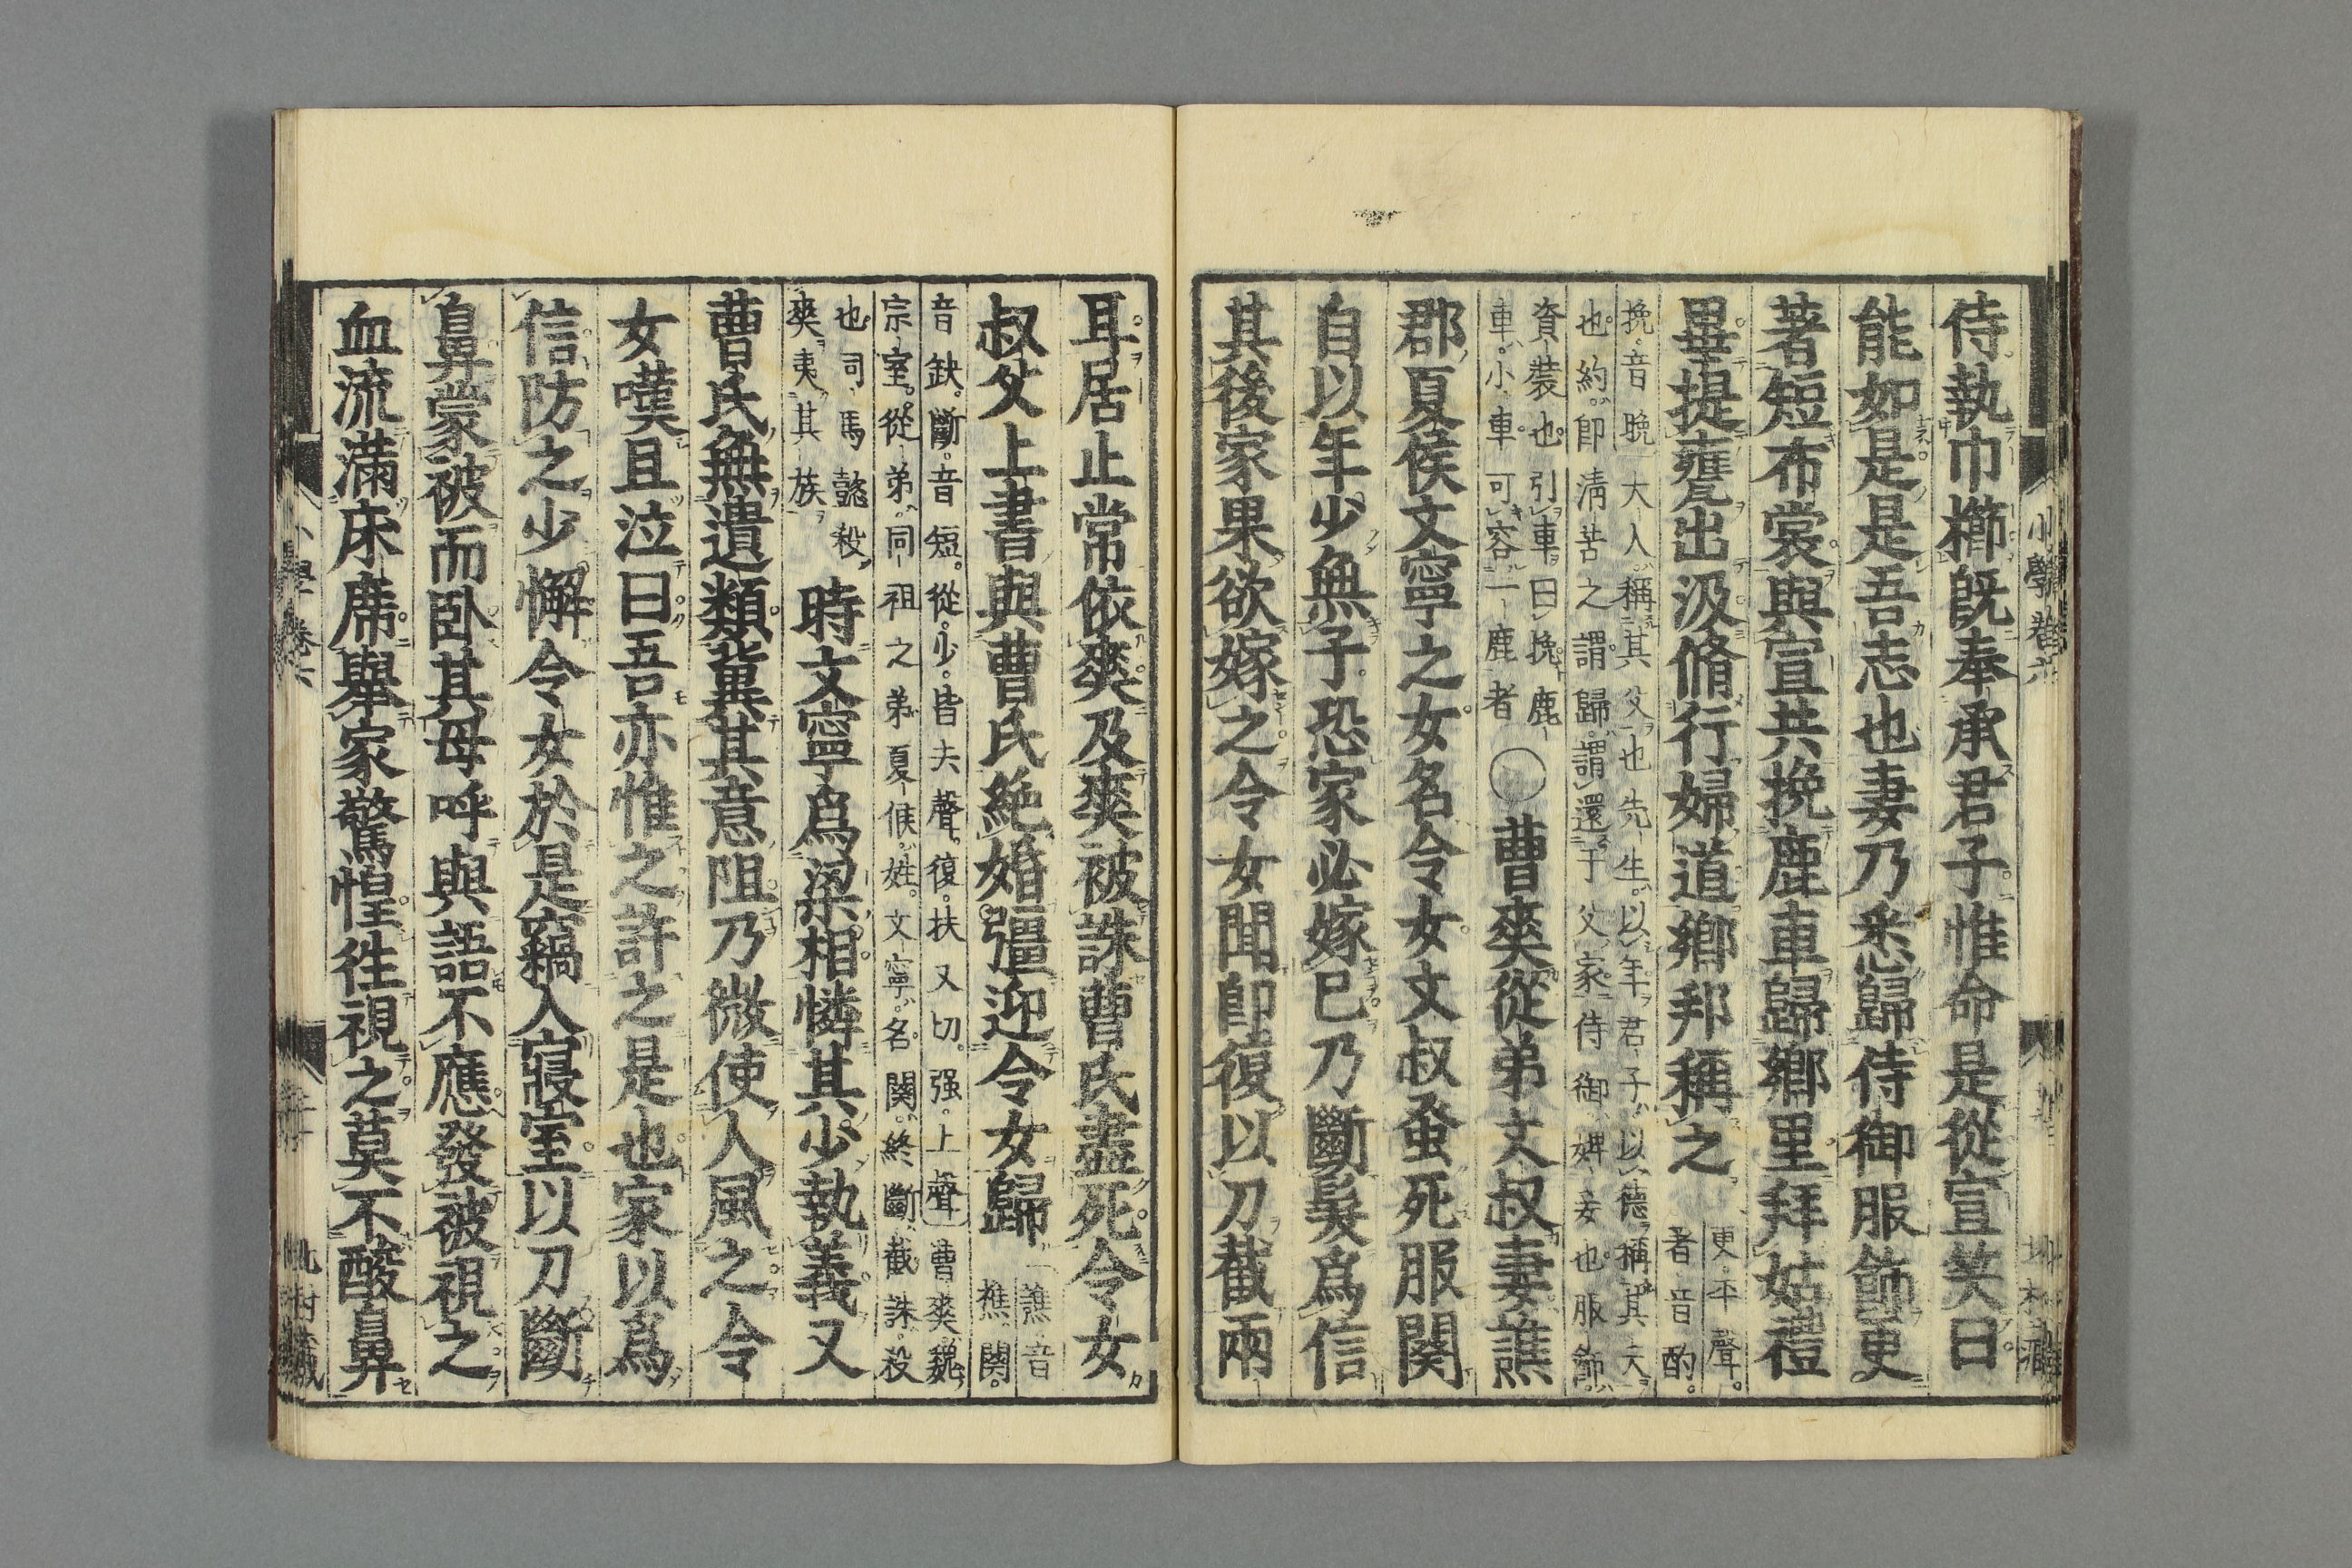 侍執巾櫛既奉承君子惟命是從宣笑曰
能如是是吾志也妻乃悉歸侍御服飾更
著短布裳與宣共挽鹿車歸鄉里拜姑禮
畢提甕出汲脩行婦道鄉邦稱之
更平聲
著音酌
挽音晚大人稱其父也先生以年君子以德稱其夫
也約卽清苦之謂歸謂還于父家侍御婢妾也服飾
資裝也引車曰挽鹿
車小車可容一鹿者
○曹爽從弟文叔妻譙
郡夏侯文寧之女名令女文叔蚤死服闋
自以年少無子恐家必嫁已乃斷髮爲信
其後家果欲嫁之令女聞卽復以刀截兩
小學卷六
耳居止常依爽及爽被誅曹氏盡死令女
叔父上書與曹氏絶婚彊迎令女歸
譙音
樵闋
音缺斷音短從少皆去聲復扶又切强上聲曹爽魏
宗室從弟同祖之弟夏侯姓文寧名闋終斷截誅殺
也司馬懿殺
爽夷其族
時文寧爲梁相憐其少執義又
曹氏無遺類冀其意阻乃微使人風之令
女嘆且泣曰吾亦惟之許之是也家以爲
信防之少懈令女於是竊入寢室以刀斷
自鼻蒙被而卧其母呼與語不應發被視之
血流滿床席舉家驚惶往視之莫不酸鼻
小學卷六